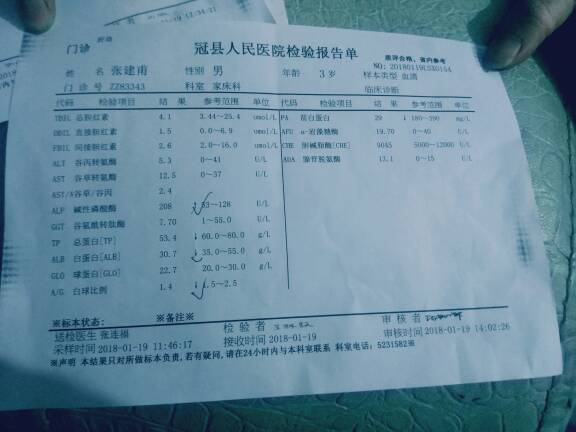 冠县人民医院检验报告单
门诊
质评合格，省内参考
NO:20180119LSX0154
姓 名 张建甫 性别 男 年龄 3 岁 样本类型 血清
门 诊 号 ZZ83343 科室 家床科 临床诊断
代码 检验项目 结 果 参考范围 单位 代码 检验项目 结 果 参考范围 单位
TBIL 总胆红素 4.1 3.44～25.4 umol/L PA 前白蛋白 29 ↓ 180～390 mg/L
DBIL 直接胆红素 1.5 0.0～6.9 umol/L AFU α-岩藻糖酶 19.70 0～40 U/L
IBIL 间接胆红素 2.6 2.0～16.0 umol/L CHE 胆碱脂酶[CHE] 9045 5000～12000 U/L
ALT 谷丙转氨酶 5.3 0～41 U/L ADA 腺苷脱氨酶 13.1 0～15 U/L
AST 谷草转氨酶 12.5 0～37 U/L
AST/A谷草/谷丙 2.4
ALP 碱性磷酸酶 208 53～128 U/L
GGT 谷氨酰转肽酶 7.70 1～55.0 U/L
TP 总蛋白[TP] 53.4 ↓ 60.0～80.0 g/L
ALB 白蛋白[ALB] 30.7 ↓ 35.0～55.0 g/L
GLO 球蛋白[GLO] 22.7 20.0～30.0 g/L
A/G 白球比例 1.4 ↓ 1.5～2.5
※标本状态： ※备注※
送检医生 张连福 检 验 者 审 核 者
采样时间 2018-01-19 11:46:17 接收时间 2018-01-19 审核时间 2018-01-19 14:02:26
※声明 本结果只对所做标本负责,若有疑问,请在24小时内与本科室联系 科室电话：5231582班